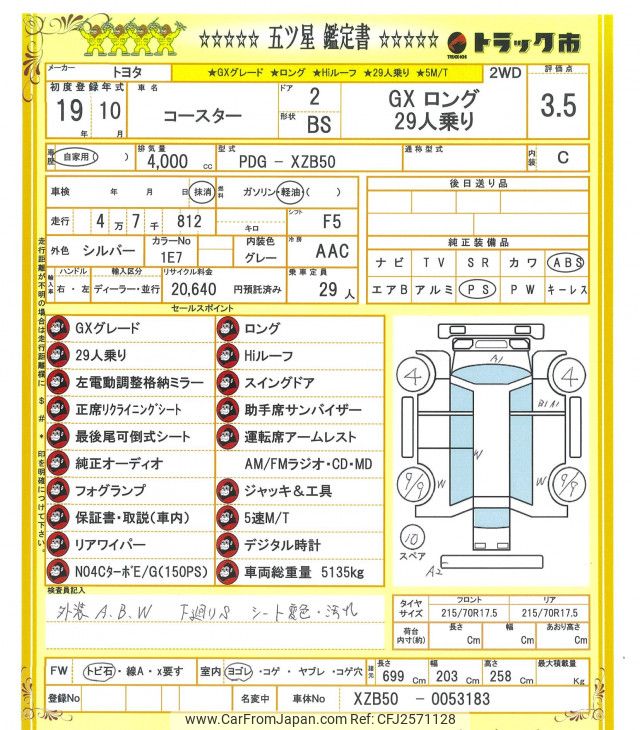 ☆☆☆☆☆ 五ツ星 鑑定書 ☆☆☆☆☆ トラック市
TRUCK-ICHI
メーカー トヨタ ★GXグレード ★ロング ★Hiルーフ ★29人乗り ★5M/T 2WD 評価点
3.5
初度登録年式 19 年 10 月
車名 コースター
ドア 2
形状 BS
GX ロング
29人乗り
車歴 自家用 ( )
排気量 4,000 cc
型式 PDG - XZB50
通称型式
内装 C
車検 年 月 日 抹消
燃料 ガソリン・軽油・( )
走行 4 万 7 千 812 キロ
シフト F5
外色 シルバー
カラーNo 1E7
内装色 グレー
冷房 AAC
輸入車 ハンドル 右・左
輸入区分 ディーラー・並行
リサイクル料金 20,640 円預託済み
乗車定員 29 人
後日送り品
純正装備品
ナビ TV SR カワ ABS
エアB アルミ PS PW キーレス
走行距離が不明の場合は走行距離欄に $ # * 印を明確につけて下さい。
セールスポイント
GXグレード ロング
29人乗り Hiルーフ
左電動調整格納ミラー スイングドア
正席リクライニングシート 助手席サンバイザー
最後尾可倒式シート 運転席アームレスト
純正オーディオ AM/FMラジオ・CD・MD
フォグランプ ジャッキ&工具
保証書・取説(車内) 5速M/T
リアワイパー デジタル時計
N04CターボE/G(150PS) 車両総重量 5135kg
A1
4 4
B1A1
W
W W
9/9 9/9
10
スペア
A2
検査員記入
外装 A.B.W 下廻りS シート変色・汚れ
タイヤサイズ フロント 215/70R17.5 リア 215/70R17.5
荷台内寸(約) 長さ Cm 幅 Cm あおり高さ Cm
FW トビ石・線A・X要す 室内 ヨゴレ・コゲ・ヤブレ・コゲ穴
諸元 長さ 699 Cm 幅 203 Cm 高さ 258 Cm 最大積載量 Kg
登録No 名変中 車体No XZB50 - 0053183
www.CarFromJapan.com Ref: CFJ2571128